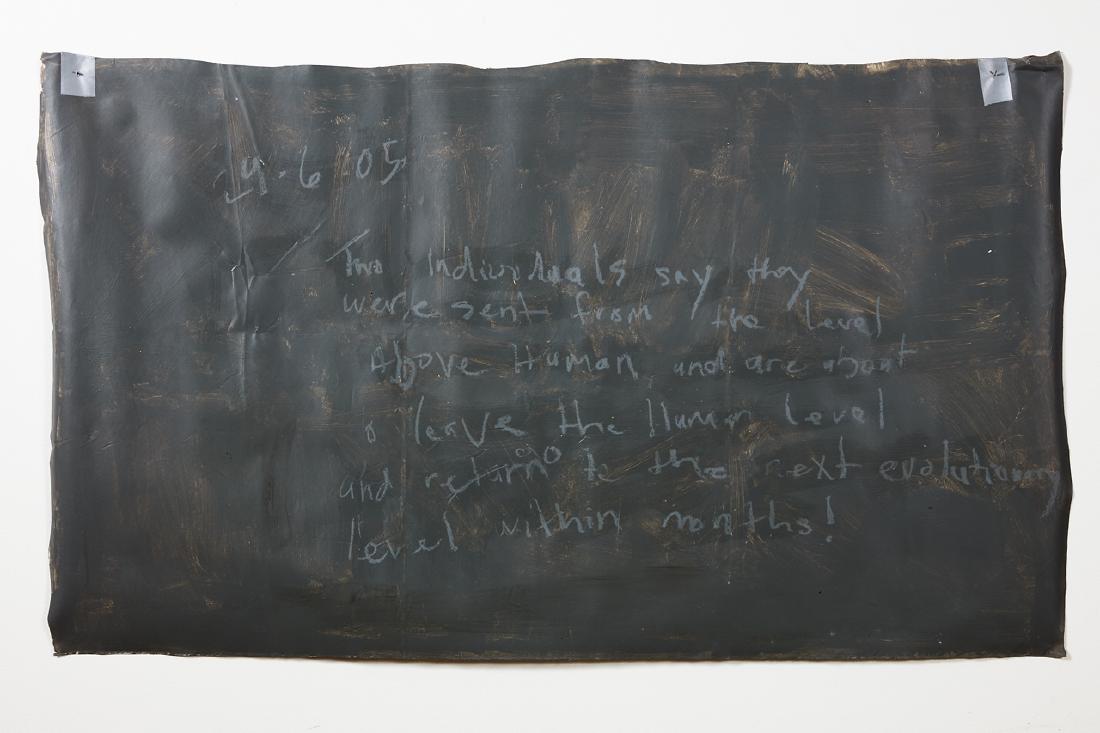 29.6 05
Two Individuals say they
were sent from the level
Above Human, and are about
o leave the Human level
and return to the next evolutionary
level within months!